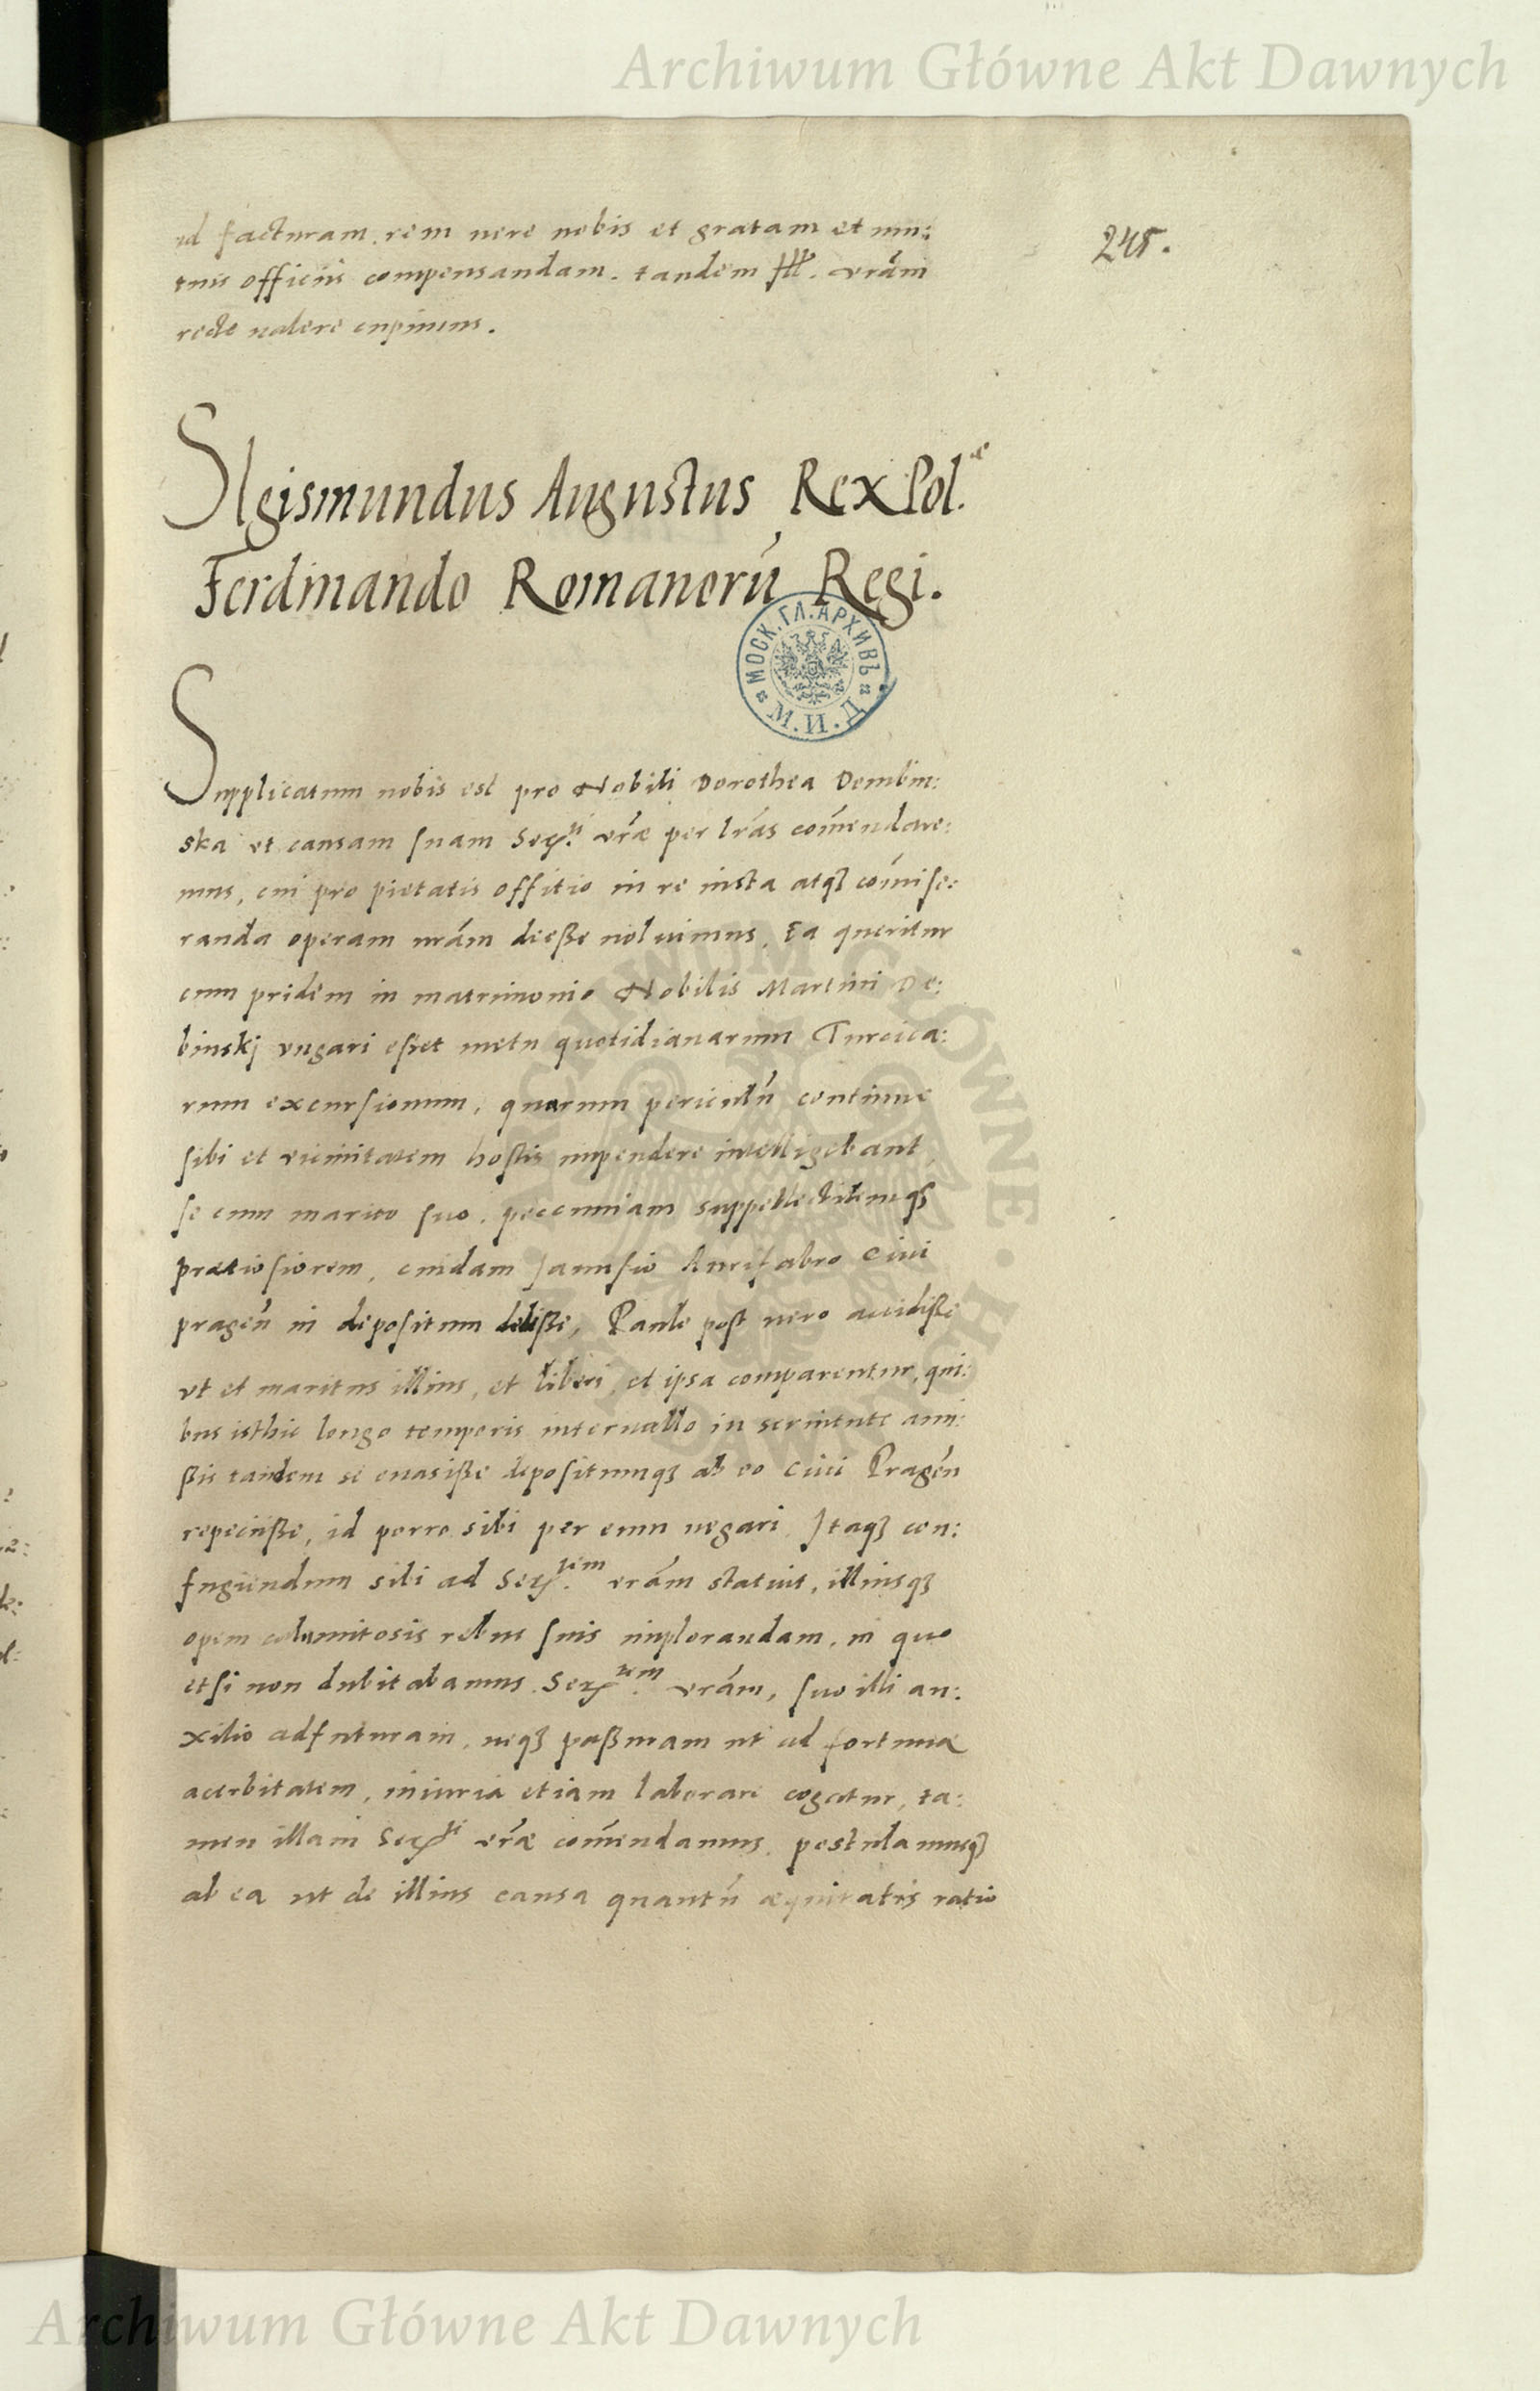 Archiwum Główne Akt Dawnych
245.
id facturam. rem uero nobis et gratam et mu:
tuis officiis compensandam. tandem Ill. vrām
recte ualere cupimus.
SIgismundus Augustus Rex Pol.ᵉ
Ferdinando Romanorū Regi.
МОСК. ГЛ. АРХИВЪ
М. И. Д.
Supplicatum nobis est pro Nobili Dorothea Dembin:
ska ut causam suam Ser.ᵗⁱ vr̄æ per lr̄as com̄endare:
mus, cui pro pietatis offitio in re iusta atqꝫ com̄ise:
randa operam nrām deeße noluimus. Ea queritur
cum pridem in matrimonio Nobilis Martini De:
binskj vngari eßet metu quotidianarum Turcica:
rum excursionum, quarum periculū continue
sibi et vicinitatem hostis impendere intelligebant,
se cum marito suo, peccuniam suppellectilemqꝫ
pretiosiorem, cuidam Janusio Aurifabro Ciui
pragen̄ in depositum dediße, Paulo post uero accidiße
vt et maritus illius, et liberi, et ipsa comparentur, qui:
bus isthic longo temporis interuallo in seruitute ami:
ßis tandem se euasiße depositumqꝫ ab eo Ciui Pragen̄
repeciiße, id porro sibi per eum negari. Itaqꝫ con:
fugiendum sibi ad Ser.ᵗᵉᵐ vrām statuit, illiusqꝫ
opem calamitosis rebus suis implorandam, in quo
etsi non dubitabamus Ser.ᵗᵉᵐ vrām, suo illi au:
xilio adfuturam, neqꝫ paßuram ut ad fortunæ
acerbitatem, iniuria etiam laborare cogatur, ta:
men illam Ser.ᵗⁱ vr̄æ com̄endamus, postulamusqꝫ
ab ea ut de illius causa quantū æquitatis ratio
ARCHIWUM GŁÓWNE AKT DAWNYCH
Archiwum Główne Akt Dawnych